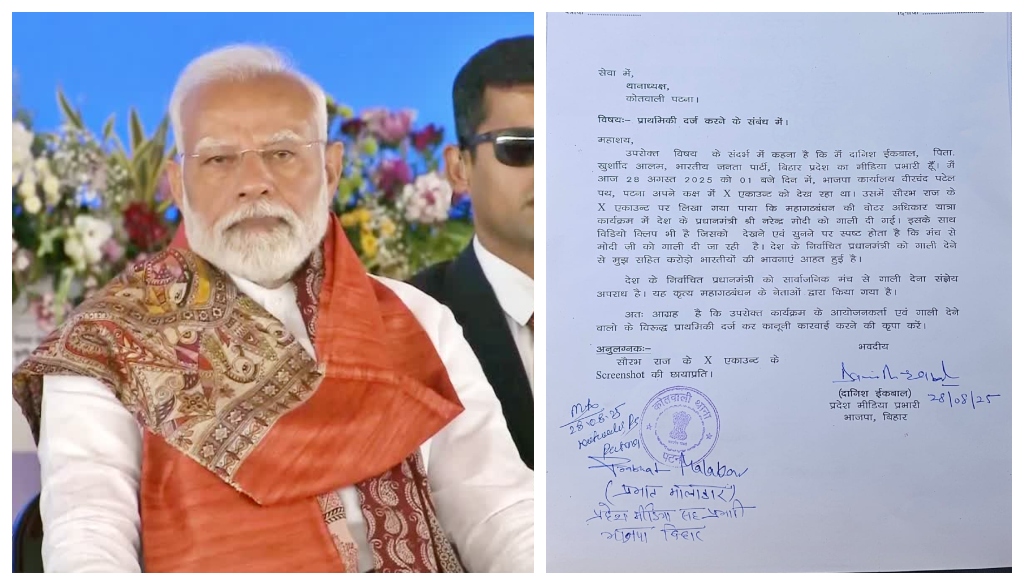 सेवा में,
थानाध्यक्ष,
कोतवाली पटना।
विषयः– प्राथमिकी दर्ज करने के संबंध में।
महाशय,
उपरोक्त विषय के संदर्भ में कहना है कि मैं दानिश ईकबाल, पिता
खुर्शीद आलम, भारतीय जनता पार्टी, बिहार प्रदेश का मीडिया प्रभारी हूँ। मैं
आज 28 अगस्त 2025 को 01 बजे दिन में, भाजपा कार्यालय वीरचंद पटेल
पथ, पटना अपने कक्ष में X एकाउन्ट को देख रहा था। उसमें सौरभ राज के
X एकाउन्ट पर लिखा गया पाया कि महागठबंधन की वोटर अधिकार यात्रा
कार्यक्रम में देश के प्रधानमंत्री श्री नरेन्द्र मोदी को गाली दी गई। इसके साथ
विडियो क्लिप भी है जिसको देखने एवं सुनने पर स्पष्ट होता है कि मंच से
मोदी जी को गाली दी जा रही है। देश के निर्वाचित प्रधानमंत्री को गाली देने
से मुझ सहित करोड़ो भारतीयों की भावनाएं आहत हुई है।
देश के निर्वाचित प्रधानमंत्री को सार्वाजनिक मंच से गाली देना संज्ञेय
अपराध है। यह कृत्य महागठबंधन के नेताओं द्वारा किया गया है।
अतः आग्रह है कि उपरोक्त कार्यक्रम के आयोजनकर्ता एवं गाली देने
वालो के विरुद्ध प्राथमिकी दर्ज कर कानूनी कारवाई करने की कृपा करें।
अनुलग्नकः–
सौरभ राज के X एकाउन्ट के
Screenshot की छायाप्रति।
भवदीय
(दानिश ईकबाल)
28/08/25
प्रदेश मीडिया प्रभारी
भाजपा, बिहार
कोतवाली थाना
पटना
28.08.25
Patna
Prabhat Malakar
(प्रभात मालाकार)
प्रदेश मीडिया सह प्रभारी
भाजपा बिहार